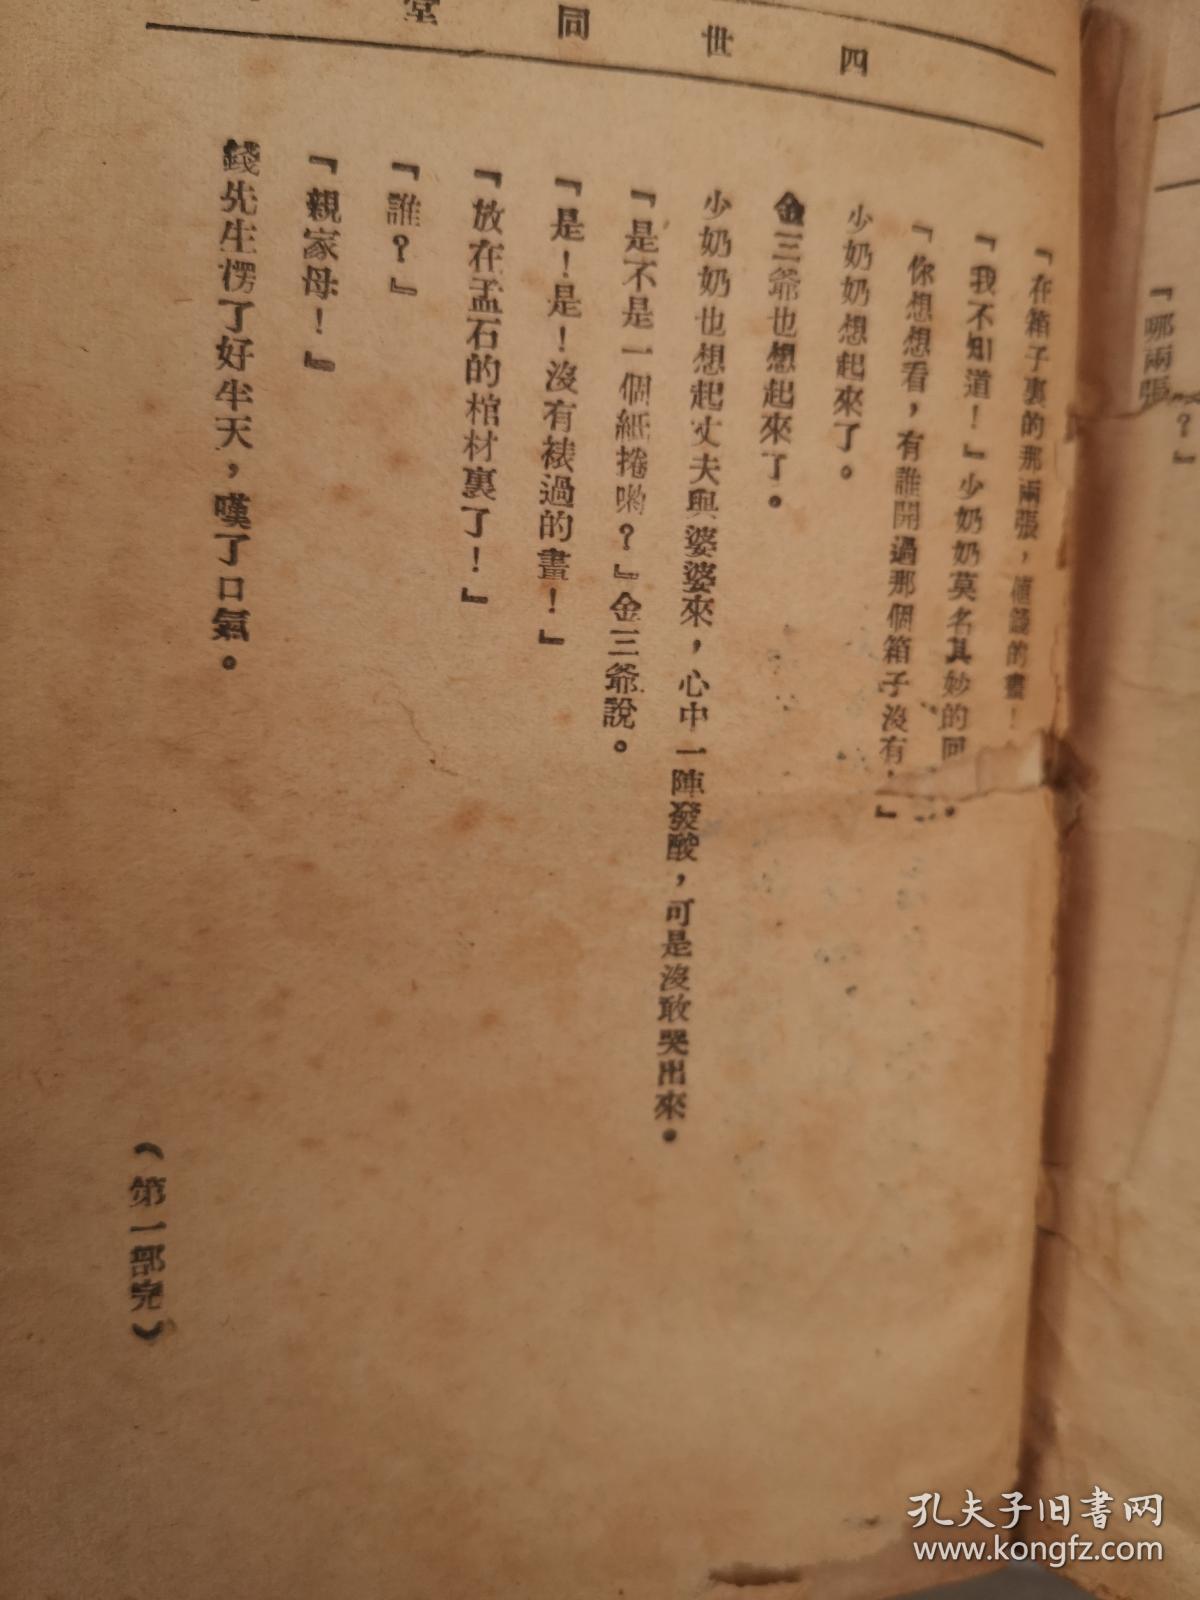 四世同堂
『哪兩張？』
『在箱子裏的那兩張，值錢的畫！
『我不知道！』少奶奶莫名其妙的回
『你想想看，有誰開過那個箱子沒有』
少奶奶想起來了。
金三爺也想起來了。
少奶奶也想起丈夫與婆婆來，心中一陣發酸，可是沒敢哭出來。
『是不是一個紙捲喲？』金三爺說。
『是！是！沒有裱過的畫！』
『放在孟石的棺材裏了！』
『誰？』
『親家母！』
錢先生愣了好半天，嘆了口氣。
（第一部完）
孔夫子旧书网
www.kongfz.com